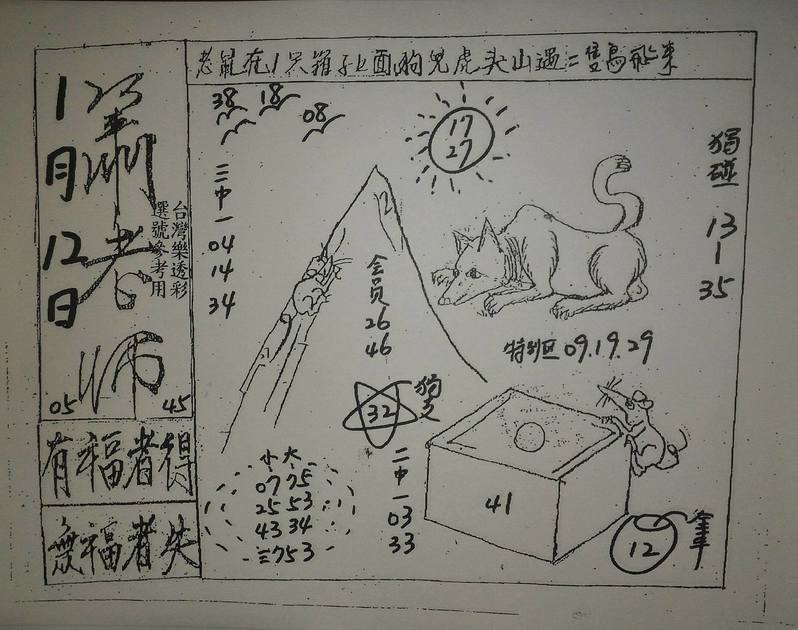 老鼠在1只箱子上面狗兒虎头山過二隻鳥飛來
1月12日
蕭老師
台灣樂透彩
選號參考用
05 45
有福者得
無福者失
38 18 08
17
27
三中一
04
14
34
会员
26
46
獨碰
13
1
35
特别区 09.19.29
32
獨支
小大
07 75
25 53
43 34
三753
二中一
03
33
41
12